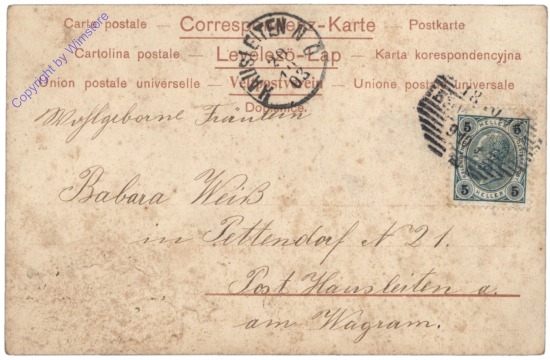 Carte postale – Correspondenz-Karte – Postkarte
Cartolina postale – Levelező-Lap – Karta korespondencyjna
Union postale universelle – Weltpostverein – Unione postale universale
Dopisnice.
HAUSLEITEN N.Ö.
03
Copyright by Wimstere
Wohlgeborne Fräulein
Babara Weiß
in Pettendorf N 21.
Post Hausleiten a.
am Wagram.
5 5
HELLER
5 5